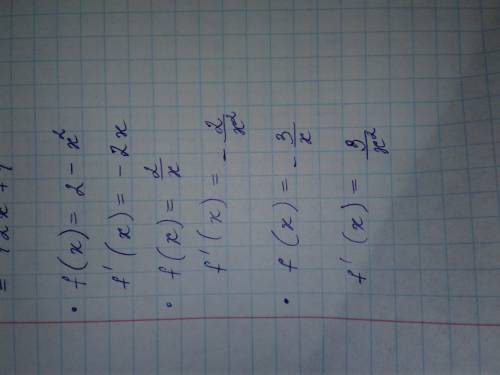 • f(x) = 2 - x²
f'(x) = - 2x
• f(x) = 2/x
f'(x) = - 2/x²
• f(x) = - 3/x
f'(x) = 3/x²